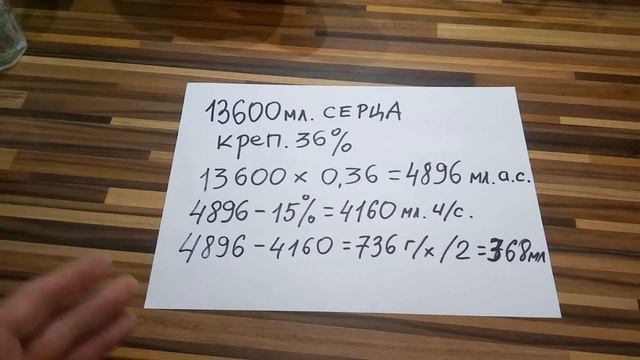 13600 мл. СЕРЦА
креп. 36%
13600 × 0,36 = 4896 мл. а.с.
4896 - 15% = 4160 мл. ч/с.
4896 - 4160 = 736 г/х /2 = 368 мл